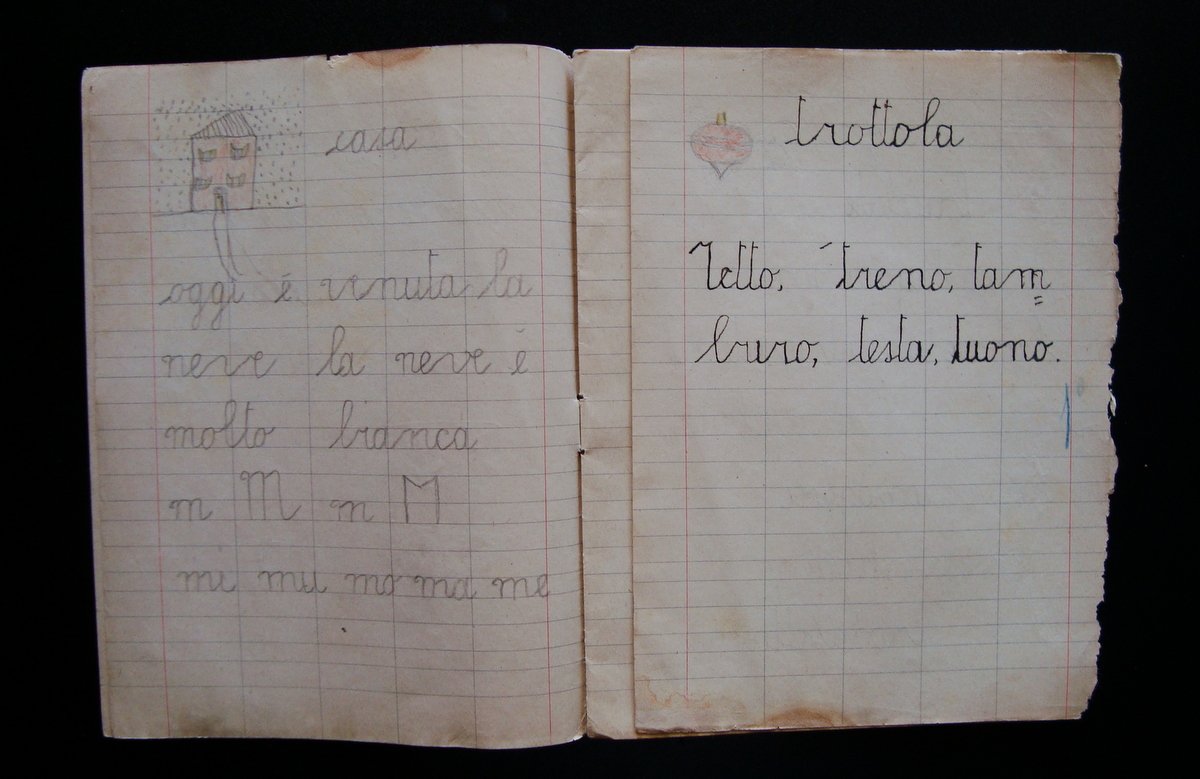 casa
oggi è venuta la
neve la neve è
molto bianca
m M m M
mi mu mo ma me
trottola
Tetto, treno, tam=
buro, testa, tuono.
1°